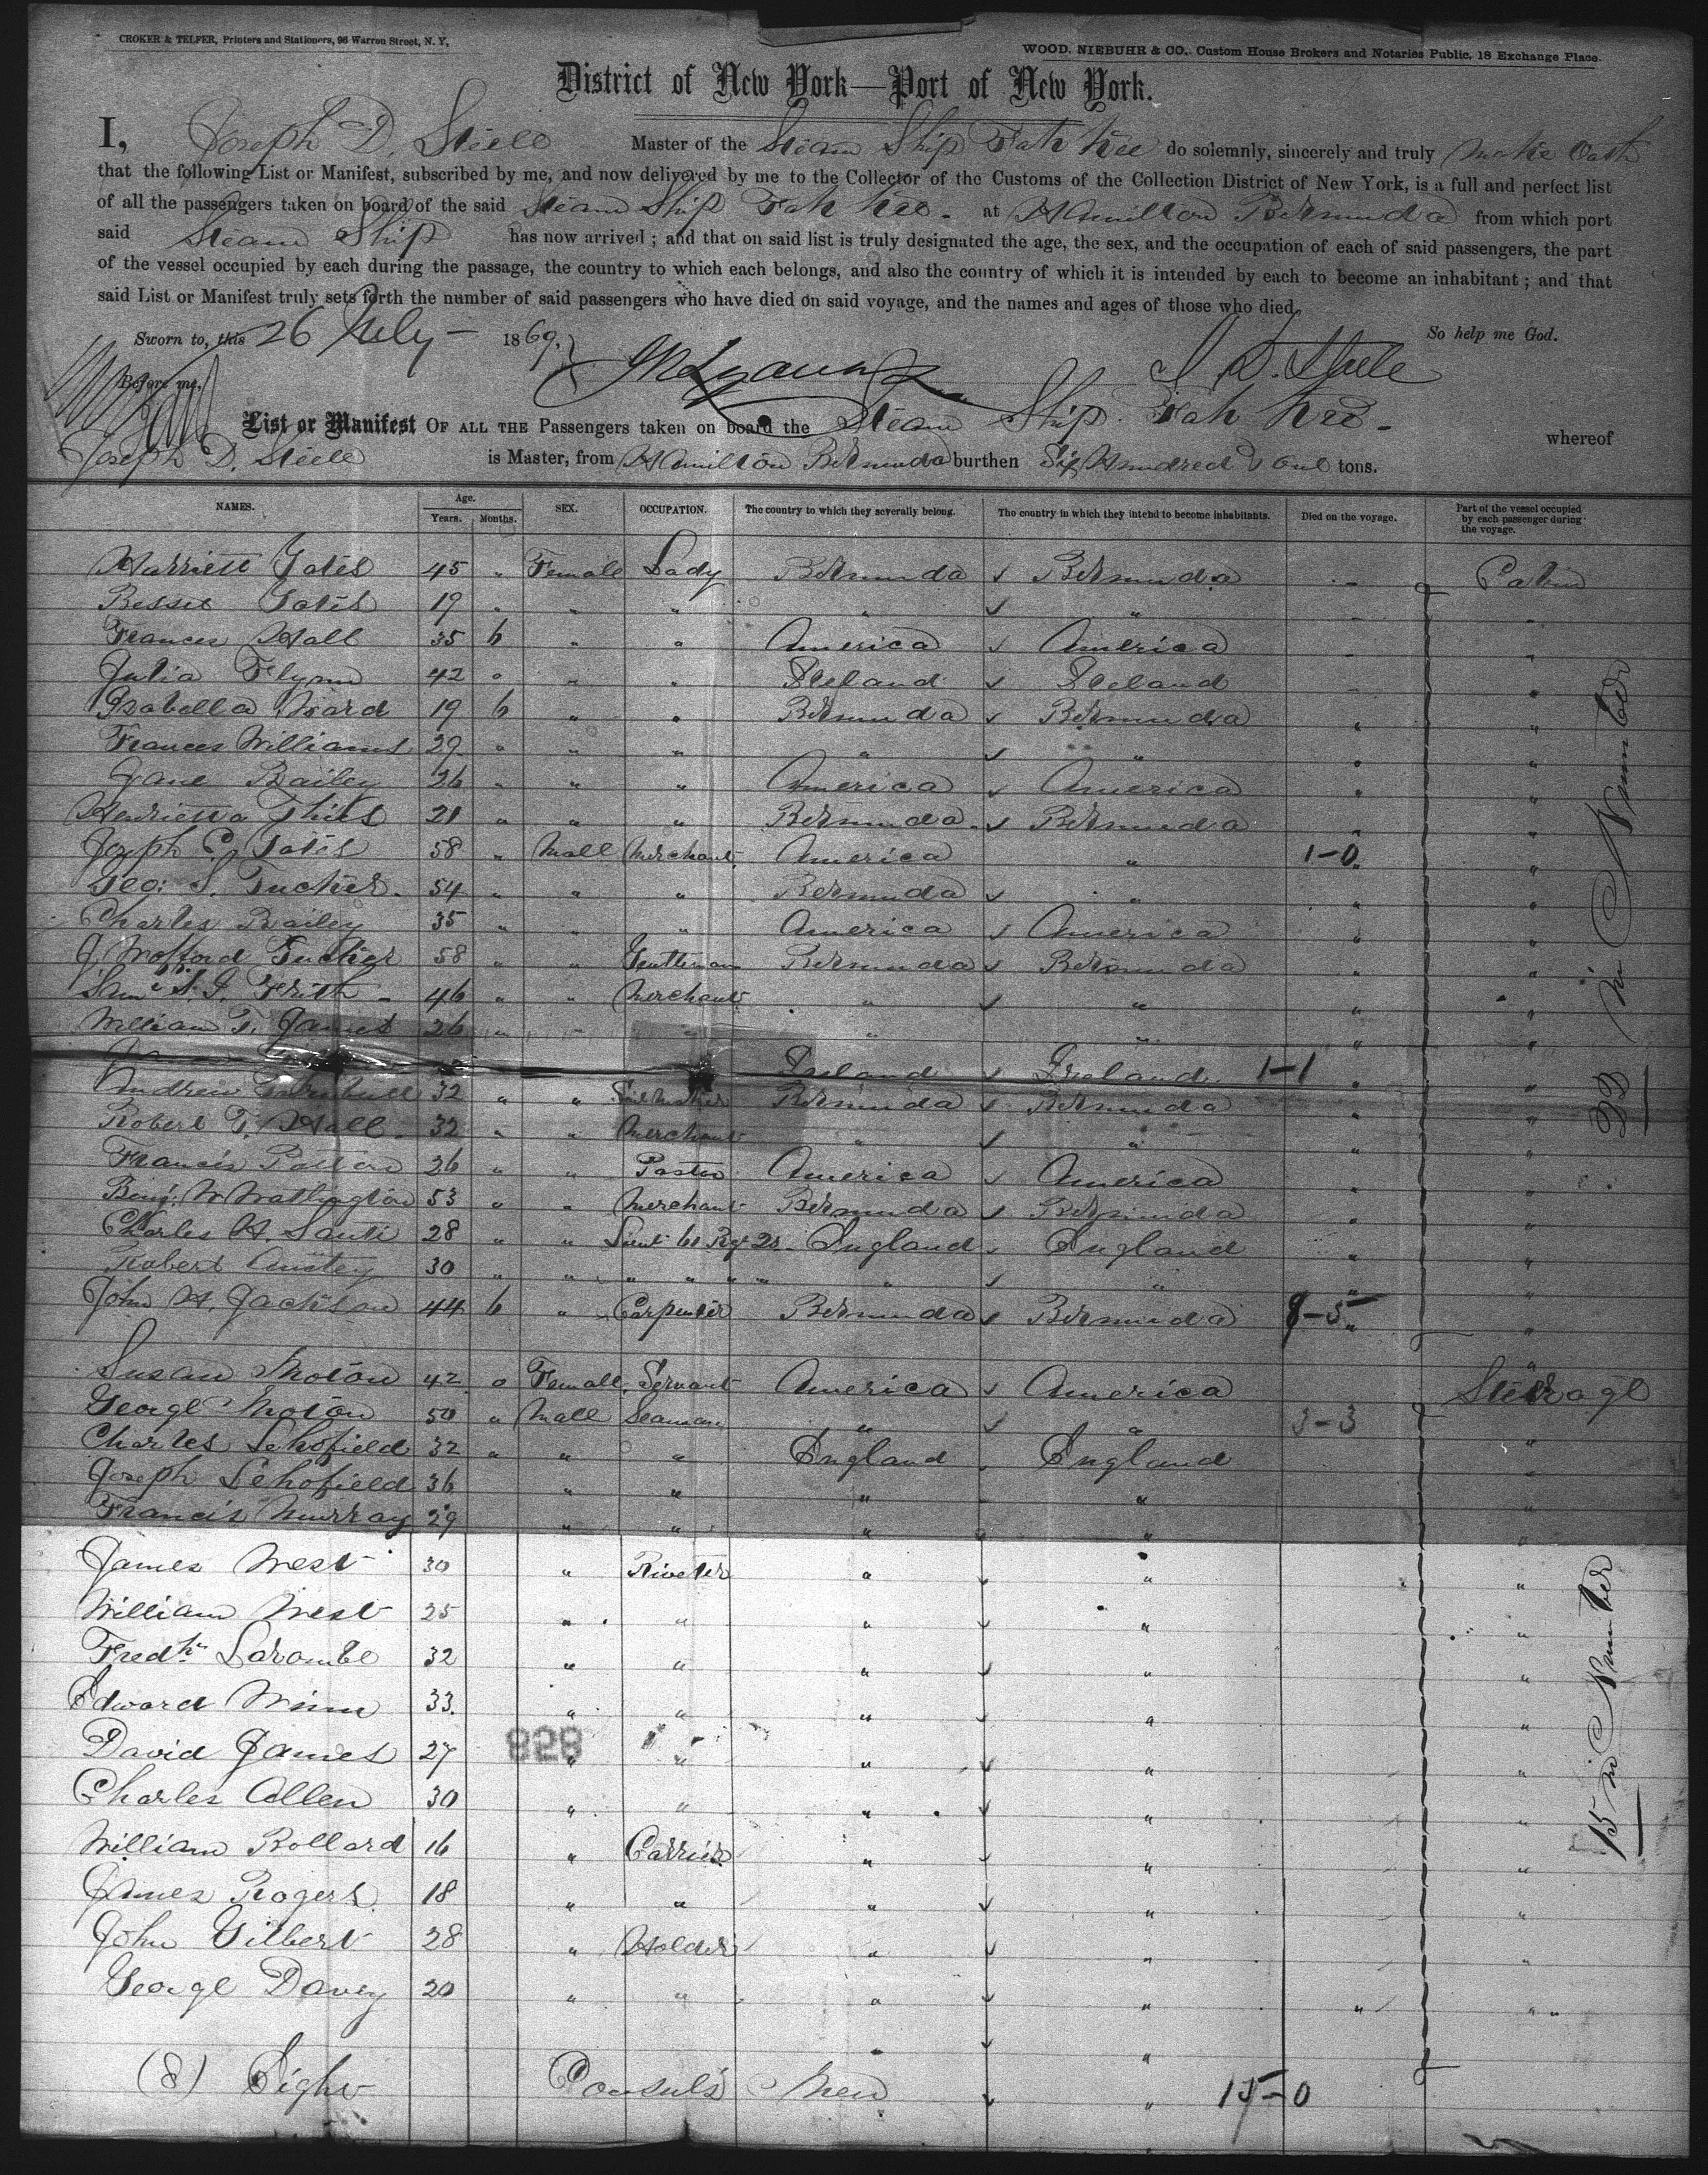 CROKER & TELFER, Printers and Stationers, 96 Warren Street, N. Y,
WOOD, NIEBUHR & CO., Custom House Brokers and Notaries Public, 18 Exchange Place.
District of New York—Port of New York.
I, Joseph D. Steele Master of the Steam Ship Fah Kee do solemnly, sincerely and truly make Oath
that the following List or Manifest, subscribed by me, and now delivered by me to the Collector of the Customs of the Collection District of New York, is a full and perfect list
of all the passengers taken on board of the said Steam Ship Fah Kee - at Hamilton Bermuda from which port
said Steam Ship has now arrived ; and that on said list is truly designated the age, the sex, and the occupation of each of said passengers, the part
of the vessel occupied by each during the passage, the country to which each belongs, and also the country of which it is intended by each to become an inhabitant ; and that
said List or Manifest truly sets forth the number of said passengers who have died on said voyage, and the names and ages of those who died.
So help me God.
Sworn to, this 26 July - 1869.
J D. Steele
Before me,
List or Manifest OF ALL THE Passengers taken on board the Steam Ship Fah Kee - whereof
Joseph D. Steele is Master, from Hamilton Bermuda burthen Six Hundred & one tons.
NAMES. Age. Years. Months. SEX. OCCUPATION. The country to which they severally belong. The country in which they intend to become inhabitants. Died on the voyage. Part of the vessel occupied by each passenger during the voyage.
Harriett Yates 45 " Female Lady Bermuda Bermuda - Cabin
Bessie Yates 19 " " " " " - "
Frances Hall 35 6 " " America America - "
Julia Flynn 42 " " " Ireland Ireland - "
Isabella Ward 19 6 " " Bermuda Bermuda " "
Frances Williams 29 " " " " " " "
Jane Bailey 26 " " " America America " "
Henrietta Thies 21 " " " Bermuda Bermuda " "
Joseph C. Yates 58 " Male Merchant America " 1-0 "
Geo: S. Tucker 54 " " " Bermuda " " "
Charles Bailey 35 " " " America America " "
J. Wofford Tucker 58 " " Gentleman Bermuda Bermuda " "
Saml S. J. Frith - 46 " " Merchant " " " "
William T. James 26 " " " " "
Ireland Ireland 1-1 " "
Andrew Turnbull 32 " " Bermuda Bermuda " "
Robert T. Hall 32 " " Merchant " " " "
Francis Patton 26 " " Pastor America America " "
Benj. W Watlington 53 " " Merchant Bermuda Bermuda " "
Charles H. Santi 28 " " Lieut 61 Regt England England " "
Robert Anstey 30 " " " " " " " " "
John H. Jackson 44 6 " Carpenter Bermuda Bermuda 8-5 "
22 in Number
Susan Moton 42 0 Female Servant America America " Steerage
George Moton 50 " Male Seaman " " 3-3
Charles Schofield 32 " " " England England "
Joseph Schofield 36 " " " " "
Francis Murray 29 " " " " "
James West 30 " Riveter " " "
William West 25 " " " " "
Fredk Larombe 32 " " " " "
Edward Winn 33. " " " " "
David James 27 " " " " "
828
Charles Allen 30 " " " " "
William Bollard 16 " Carrier " " "
James Rogers 18 " " " " "
John Gilbert 28 " Holder " " "
George Davey 20 " " " " " " "
15 in Number
(8) Eight Consul's Men " 15-0